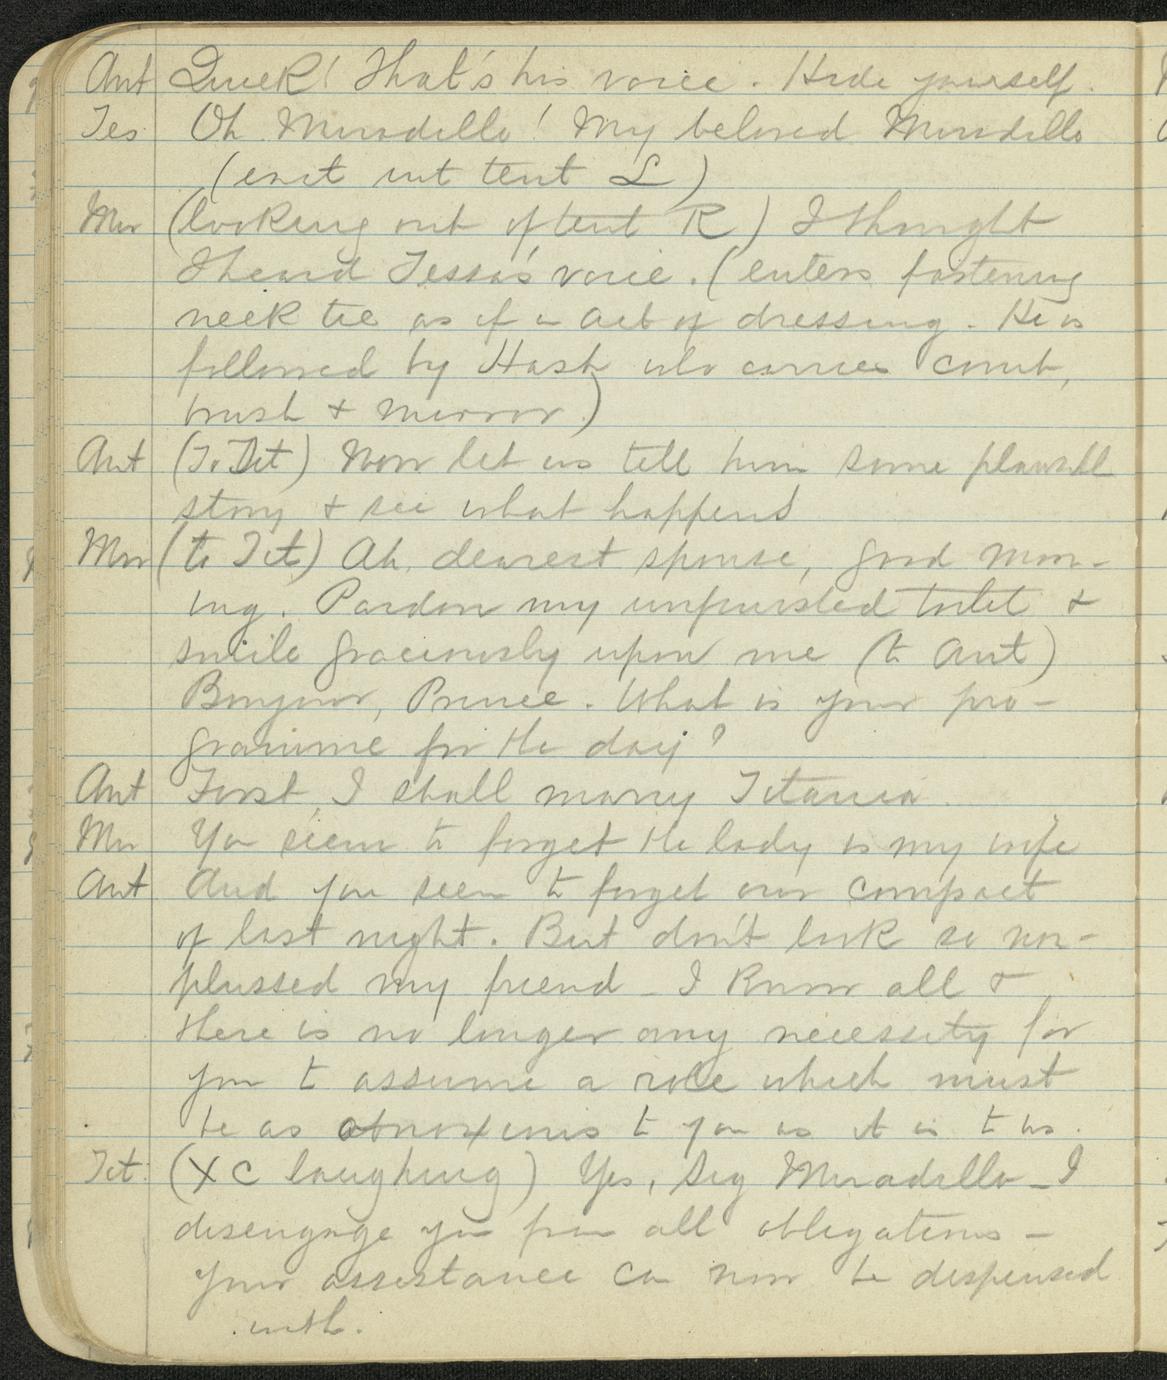 Ant Quick! That's his voice. Hide yourself.
Tes Oh Miradillo! My beloved Miradillo
(exit int tent L)
Mir (looking out of tent R) I thought
I heard Tessa's voice. (enters fastening
neck tie as if in act of dressing. He is
followed by Hash who carries comb,
brush & mirror.)
Ant (To Tit) Now let us tell him some plausibl
story & see what happens
Mir (to Tit) Ah, dearest spouse, good morn-
ing. Pardon my unfinished toilet &
smile graciously upon me (to Ant)
Bonjour, Prince. What is your pro-
gramme for the day?
Ant First, I shall marry Titania.
Mir You seem to forget the lady is my wife
Ant And you seem to forget our compact
of last night. But don't look so non-
plussed my friend - I know all &
there is no longer any necessity for
you to assume a role which must
be as obnoxious to you as it is to us.
Tit. (X C laughing) Yes, Sig Miradillo - I
disengage you from all obligations -
Your assistance can now be dispensed
with.